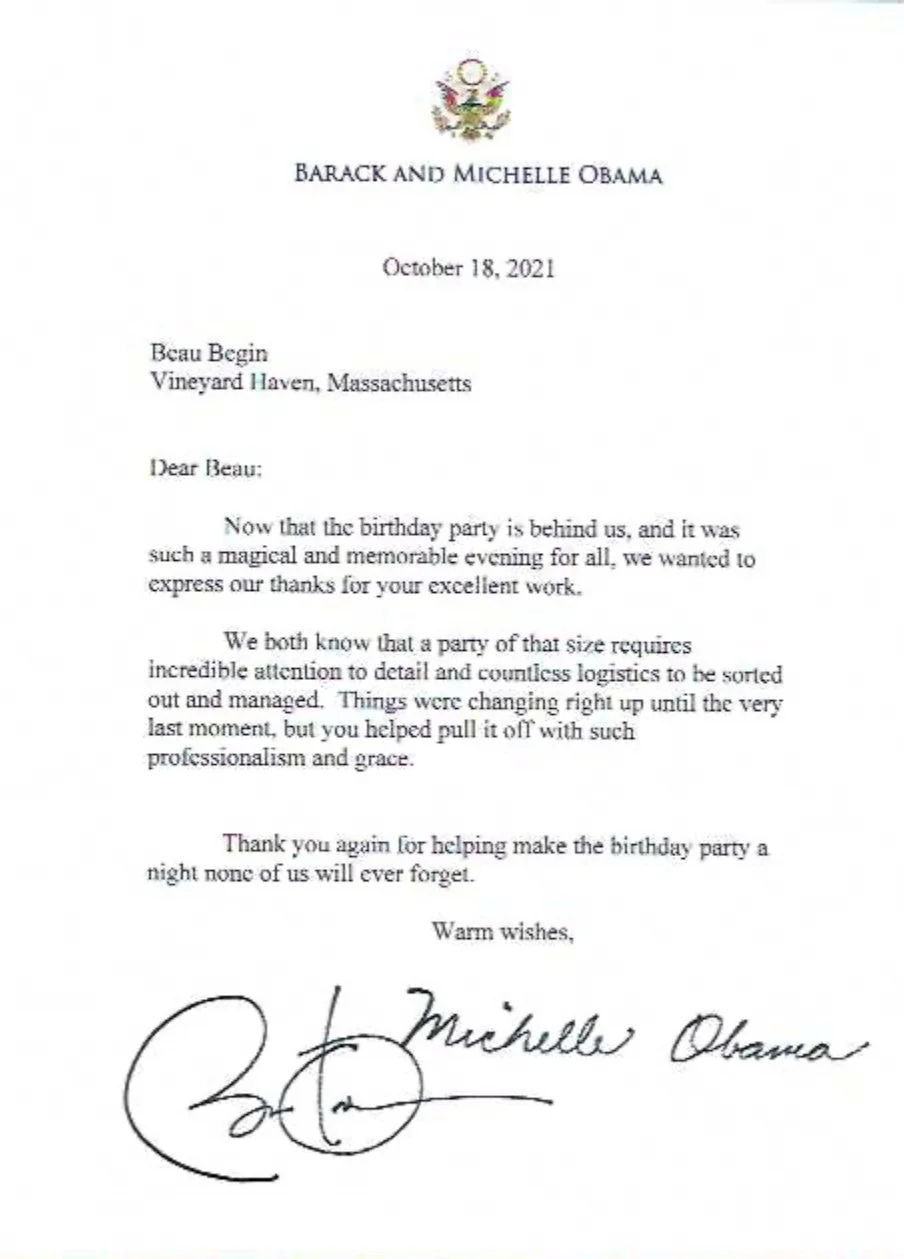 BARACK AND MICHELLE OBAMA
October 18, 2021
Beau Begin
Vineyard Haven, Massachusetts
Dear Beau:
Now that the birthday party is behind us, and it was
such a magical and memorable evening for all, we wanted to
express our thanks for your excellent work.
We both know that a party of that size requires
incredible attention to detail and countless logistics to be sorted
out and managed. Things were changing right up until the very
last moment, but you helped pull it off with such
professionalism and grace.
Thank you again for helping make the birthday party a
night none of us will ever forget.
Warm wishes,
Michelle Obama